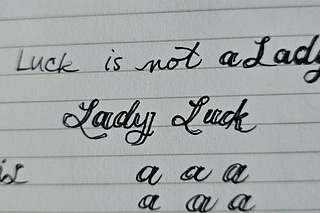 Luck is not a Lady
Lady Luck
is a a a
a a a